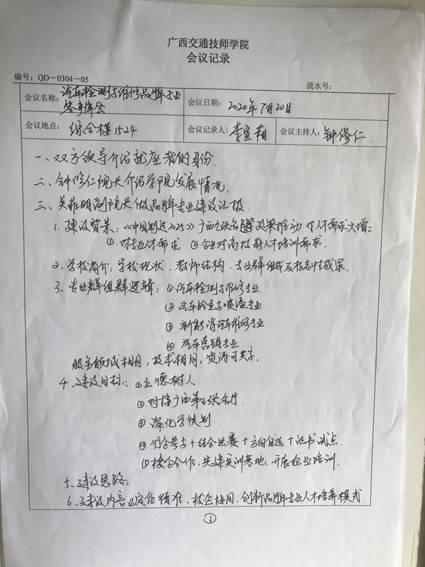 广西交通技师学院
会议记录
编号：QD－0304－05 流水号：
会议名称：汽车检测与维修品牌专业
签字峰会 会议日期：2020年7月20日
会议地点：综合楼1524 会议记录人：李宣莉 会议主持人：钟修仁
一、双方领导介绍就座者的身份.
二、钟修仁院长介绍学院发展情况.
三、关菲明副院长做品牌专业建设汇报
1. 建设背景：《中国制造2025》广西九张名牌政策推动 对人才需求大增：
① 对专业人才需求 ② 企业对高技能人才培训需求.
2. 学校简介，学校现状、教师结构、专业群组成及标志性成果.
3. 专业群组群逻辑：①汽车检测与维修专业
② 汽车钣金与喷漆专业
③ 新能源汽车维修专业
④ 汽车营销专业
服务领域相同，技术相同，资源可共享.
4. 建设目标：①立德树人
② 对接广西第二张名片
③ 深化学徒制
⑤ 校企合作，共建实训基地，开展企业培训.
5. 建设思路：
6. 建设内容①定位精准、校企协同、创新品牌专业人才培养模式
①